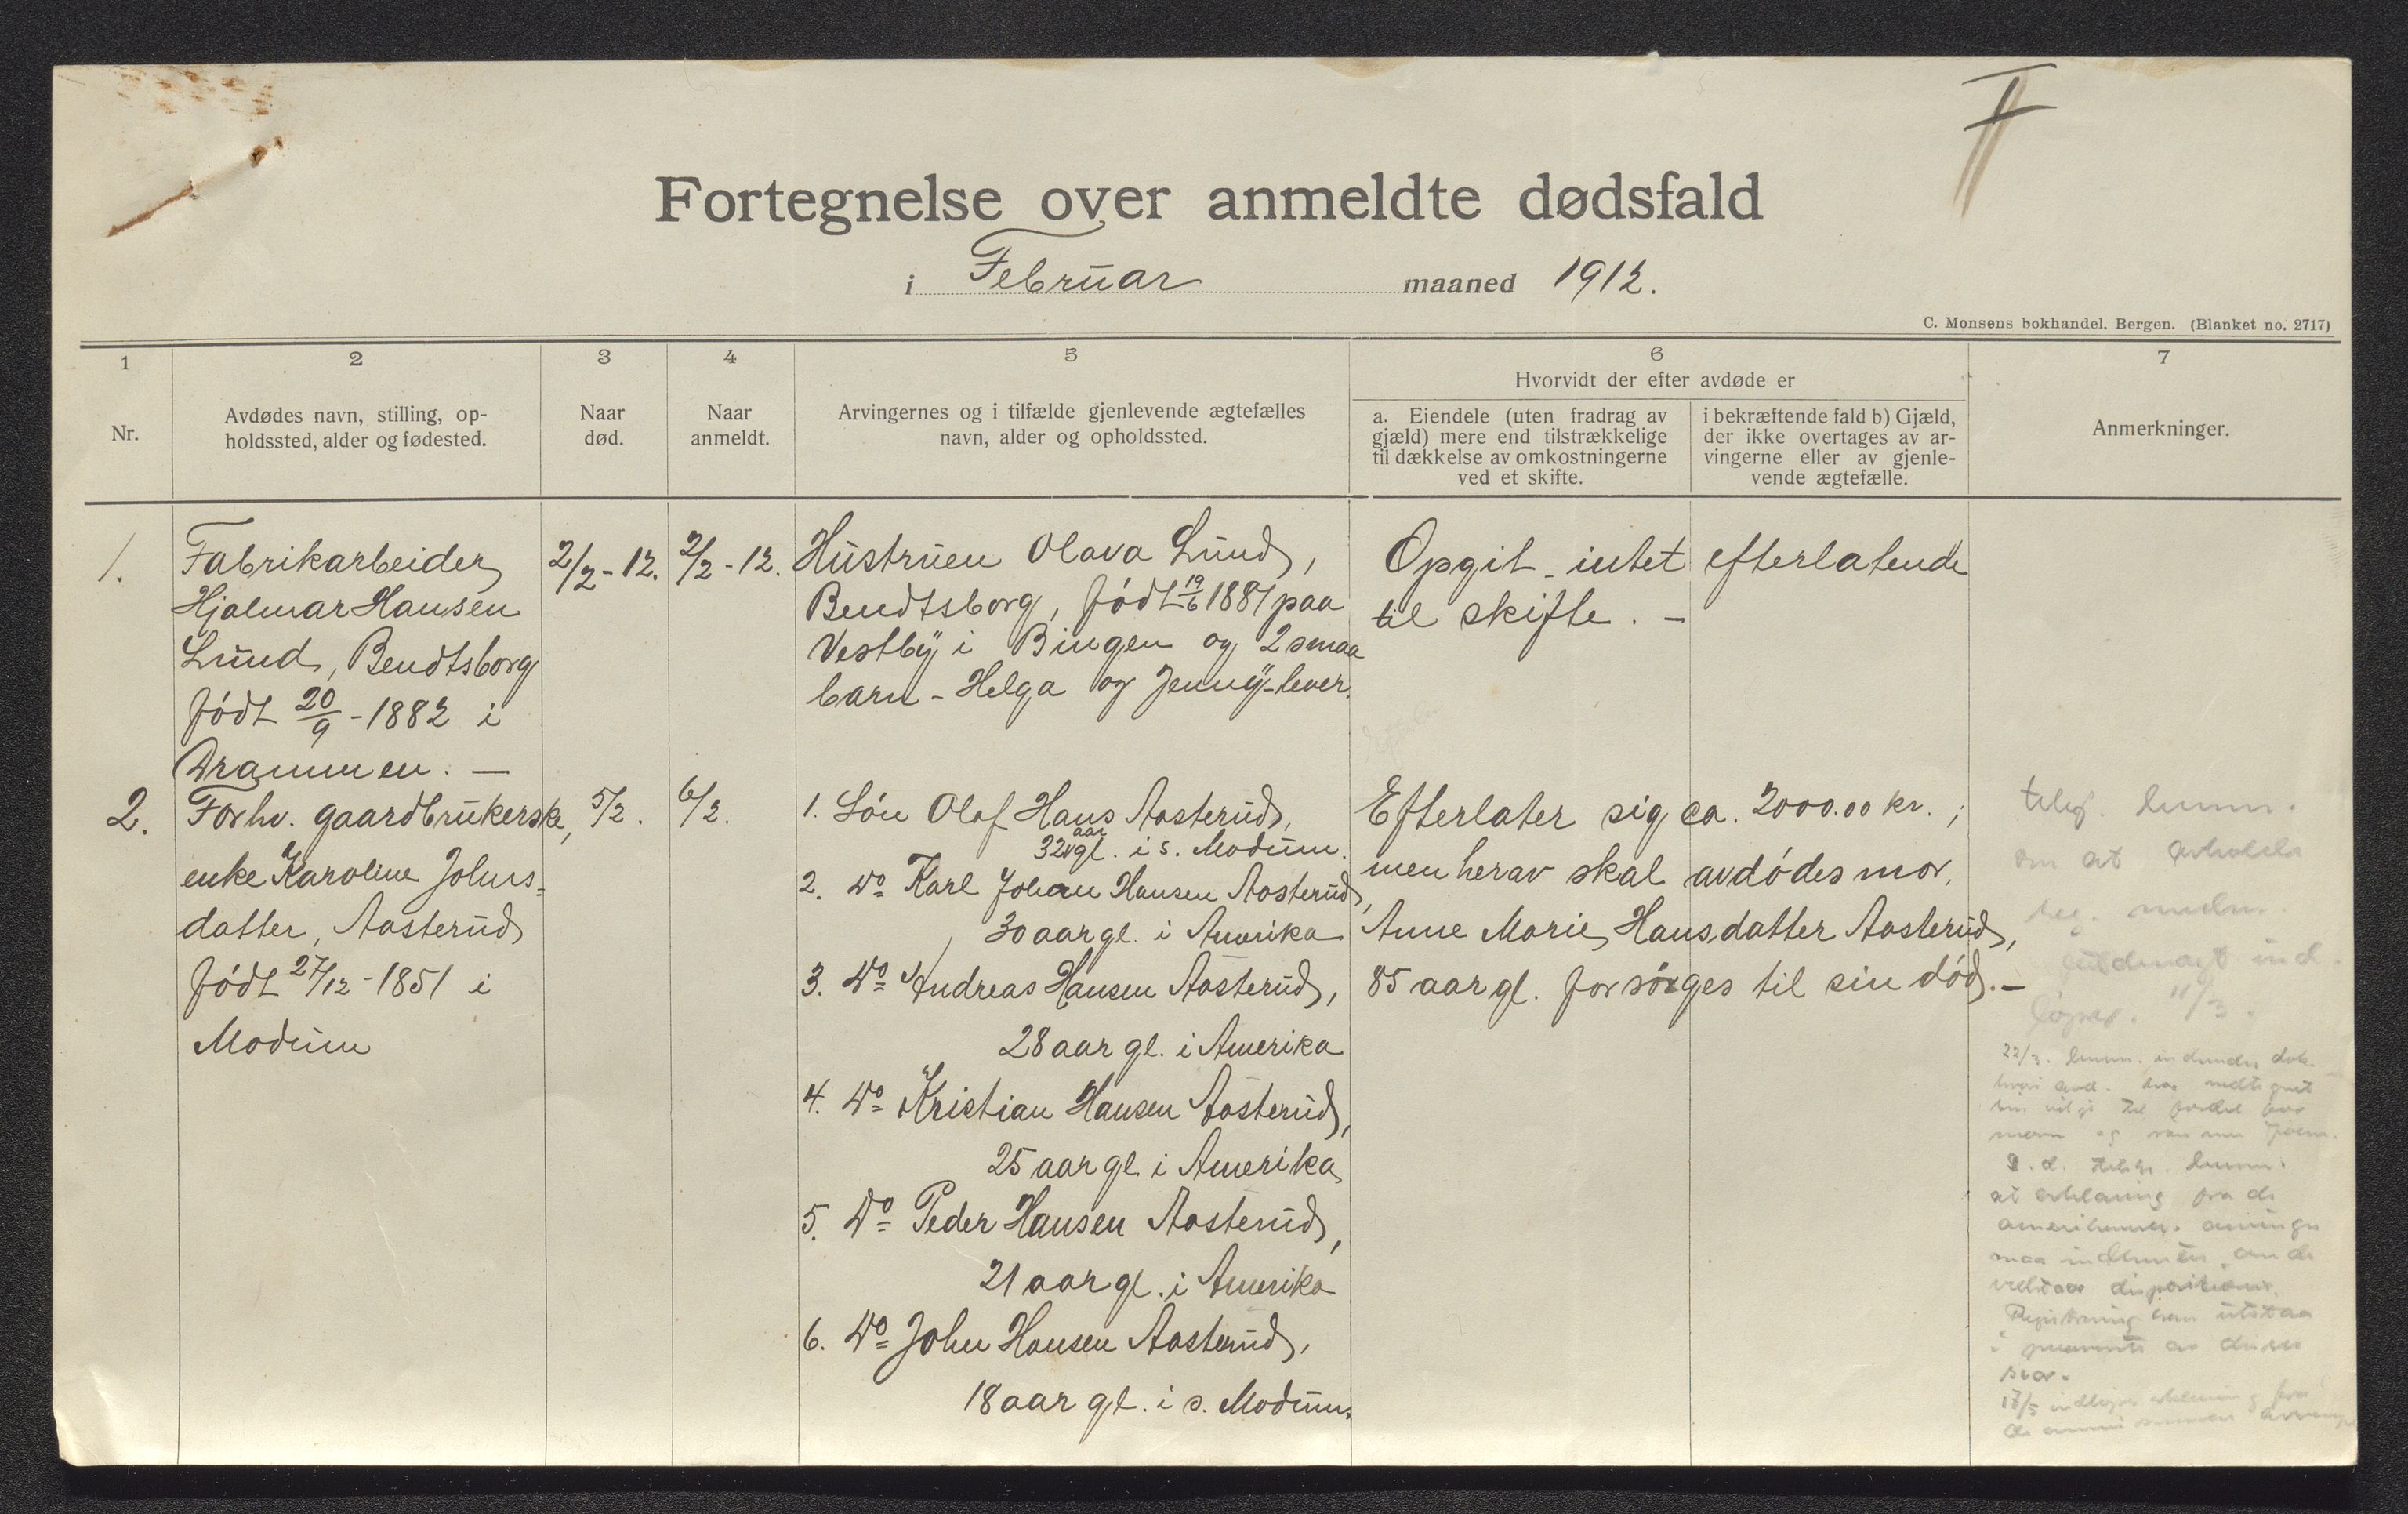 II
Fortegnelse over anmeldte dødsfald
i Februar maaned 1912.
C. Monsens bokhandel. Bergen. (Blanket no. 2717)
1
Nr.
2
Avdødes navn, stilling, op-
holdssted, alder og fødested.
3
Naar
død.
4
Naar
anmeldt.
5
Arvingernes og i tilfælde gjenlevende ægtefælles
navn, alder og opholdssted.
6
Hvorvidt der efter avdøde er
a. Eiendele (uten fradrag av
gjæld) mere end tilstrækkelige
til dækkelse av omkostningerne
ved et skifte.
i bekræftende fald b) Gjæld,
der ikke overtages av ar-
vingerne eller av gjenle-
vende ægtefælle.
7
Anmerkninger.
1.
Fabrikarbeider
Hjalmar Hansen
Lund, Bendtsborg
født 20/9-1882 i
Drammen. —
2/2-12.
2/2-12.
Hustruen Olava Lund,
Bendtsborg, født 19/6 1881 paa
Vestby i Bingen og 2 smaa
barn - Helga og Jenny - lever.
Opgit intet efterlatende
til skifte. —
2.
Forhv. gaardbrukerske,
enke Karoline Johns=
datter, Aasterud
født 27/12-1851 i
Modum
5/2.
6/2.
1. Søn Olaf Hans Aasterud,
32 aar gl. i s. Modum.
2. Do Karl Johan Hansen Aasterud,
30 aar gl. i Amerika
3. Do Andreas Hansen Aasterud,
28 aar gl. i Amerika
4. Do Kristian Hansen Aasterud,
25 aar gl. i Amerika
5. Do Peder Hansen Aasterud,
21 aar gl. i Amerika
6. Do John Hansen Aasterud,
18 aar gl. i s. Modum.
Efterlater sig ca. 2000.00 kr.;
men herav skal avdødes mor,
Anne Marie Hansdatter Aasterud,
85 aar gl. forsørges til sin død. —
om at
ind
11/3.
22/3.
til fordel for
og
at erklæring fra de
maa
Registrering kan utstaa
i
svar.